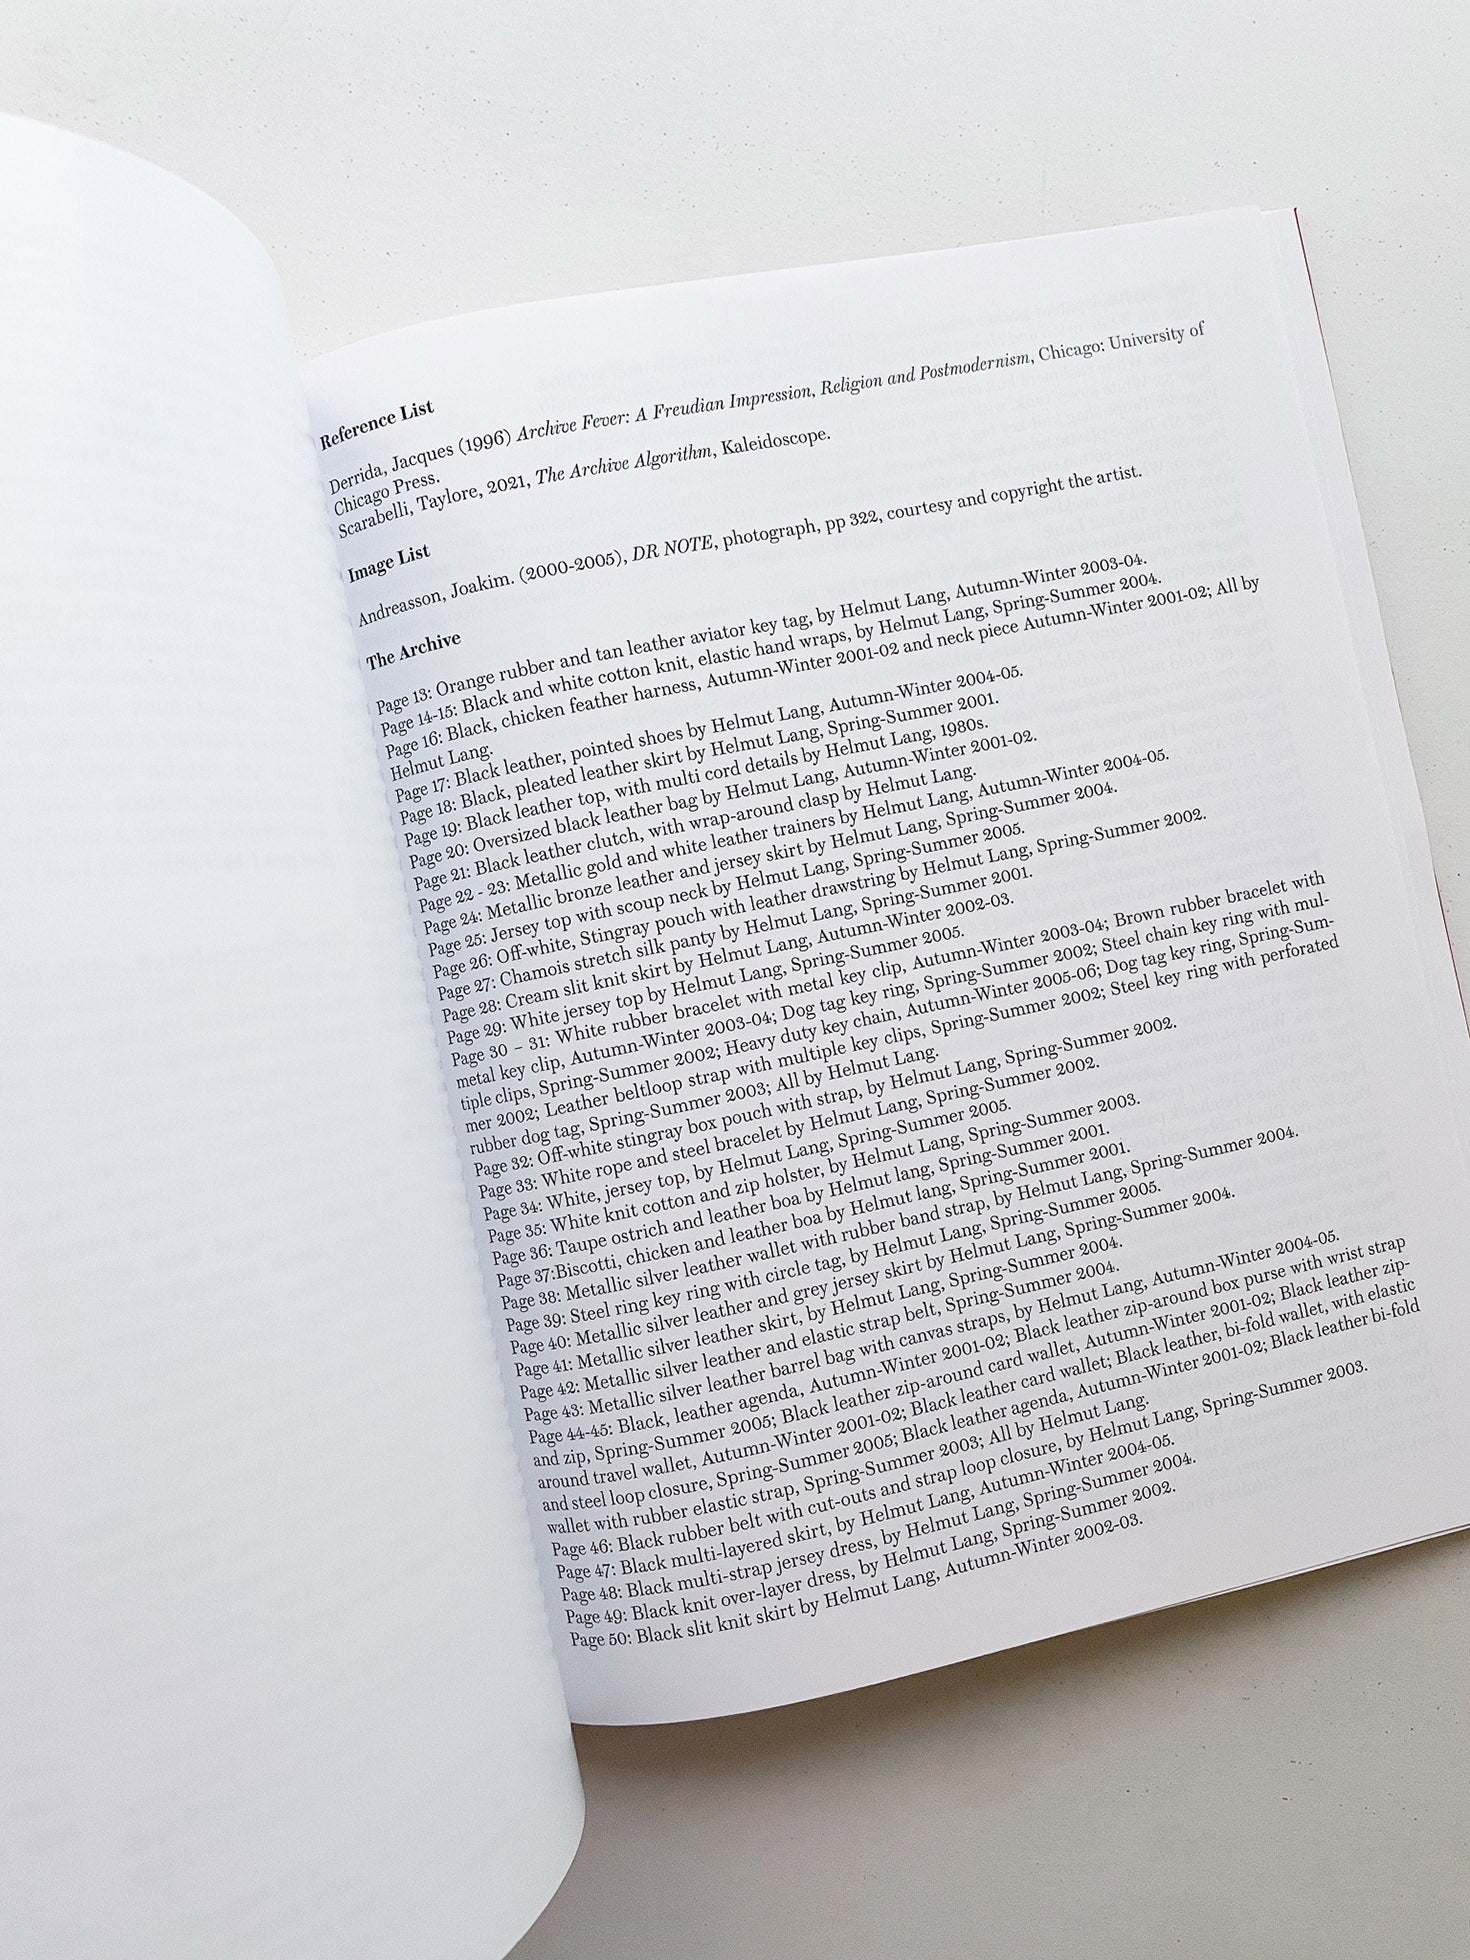 Reference List
Derrida, Jacques (1996) Archive Fever: A Freudian Impression, Religion and Postmodernism, Chicago: University of
Chicago Press.
Scarabelli, Taylore, 2021, The Archive Algorithm, Kaleidoscope.
Image List
Andreasson, Joakim. (2000-2005), DR NOTE, photograph, pp 322, courtesy and copyright the artist.
The Archive
Page 13: Orange rubber and tan leather aviator key tag, by Helmut Lang, Autumn-Winter 2003-04.
Page 14-15: Black and white cotton knit, elastic hand wraps, by Helmut Lang, Spring-Summer 2004.
Page 16: Black, chicken feather harness, Autumn-Winter 2001-02 and neck piece Autumn-Winter 2001-02; All by
Helmut Lang.
Page 17: Black leather, pointed shoes by Helmut Lang, Autumn-Winter 2004-05.
Page 18: Black, pleated leather skirt by Helmut Lang, Spring-Summer 2001.
Page 19: Black leather top, with multi cord details by Helmut Lang, 1980s.
Page 20: Oversized black leather bag by Helmut Lang, Autumn-Winter 2001-02.
Page 21: Black leather clutch, with wrap-around clasp by Helmut Lang.
Page 22 - 23: Metallic gold and white leather trainers by Helmut Lang, Autumn-Winter 2004-05.
Page 24: Metallic bronze leather and jersey skirt by Helmut Lang, Spring-Summer 2004.
Page 25: Jersey top with scoup neck by Helmut Lang, Spring-Summer 2005.
Page 26: Off-white, Stingray pouch with leather drawstring by Helmut Lang, Spring-Summer 2002.
Page 27: Chamois stretch silk panty by Helmut Lang, Spring-Summer 2001.
Page 28: Cream slit knit skirt by Helmut Lang, Autumn-Winter 2002-03.
Page 29: White jersey top by Helmut Lang, Spring-Summer 2005.
Page 30 – 31: White rubber bracelet with metal key clip, Autumn-Winter 2003-04; Brown rubber bracelet with
metal key clip, Autumn-Winter 2003-04; Dog tag key ring, Spring-Summer 2002; Steel chain key ring with mul-
tiple clips, Spring-Summer 2002; Heavy duty key chain, Autumn-Winter 2005-06; Dog tag key ring, Spring-Sum-
mer 2002; Leather beltloop strap with multiple key clips, Spring-Summer 2002; Steel key ring with perforated
rubber dog tag, Spring-Summer 2003; All by Helmut Lang.
Page 32: Off-white stingray box pouch with strap, by Helmut Lang, Spring-Summer 2002.
Page 33: White rope and steel bracelet by Helmut Lang, Spring-Summer 2002.
Page 34: White, jersey top, by Helmut Lang, Spring-Summer 2005.
Page 35: White knit cotton and zip holster, by Helmut Lang, Spring-Summer 2003.
Page 36: Taupe ostrich and leather boa by Helmut lang, Spring-Summer 2001.
Page 37:Biscotti, chicken and leather boa by Helmut lang, Spring-Summer 2001.
Page 38: Metallic silver leather wallet with rubber band strap, by Helmut Lang, Spring-Summer 2004.
Page 39: Steel ring key ring with circle tag, by Helmut Lang, Spring-Summer 2005.
Page 40: Metallic silver leather and grey jersey skirt by Helmut Lang, Spring-Summer 2004.
Page 41: Metallic silver leather skirt, by Helmut Lang, Spring-Summer 2004.
Page 42: Metallic silver leather and elastic strap belt, Spring-Summer 2004.
Page 43: Metallic silver leather barrel bag with canvas straps, by Helmut Lang, Autumn-Winter 2004-05.
Page 44-45: Black, leather agenda, Autumn-Winter 2001-02; Black leather zip-around box purse with wrist strap
and zip, Spring-Summer 2005; Black leather zip-around card wallet, Autumn-Winter 2001-02; Black leather zip-
around travel wallet, Autumn-Winter 2001-02; Black leather card wallet; Black leather, bi-fold wallet, with elastic
and steel loop closure, Spring-Summer 2005; Black leather agenda, Autumn-Winter 2001-02; Black leather bi-fold
wallet with rubber elastic strap, Spring-Summer 2003; All by Helmut Lang.
Page 46: Black rubber belt with cut-outs and strap loop closure, by Helmut Lang, Spring-Summer 2003.
Page 47: Black multi-layered skirt, by Helmut Lang, Autumn-Winter 2004-05.
Page 48: Black multi-strap jersey dress, by Helmut Lang, Spring-Summer 2004.
Page 49: Black knit over-layer dress, by Helmut Lang, Spring-Summer 2002.
Page 50: Black slit knit skirt by Helmut Lang, Autumn-Winter 2002-03.